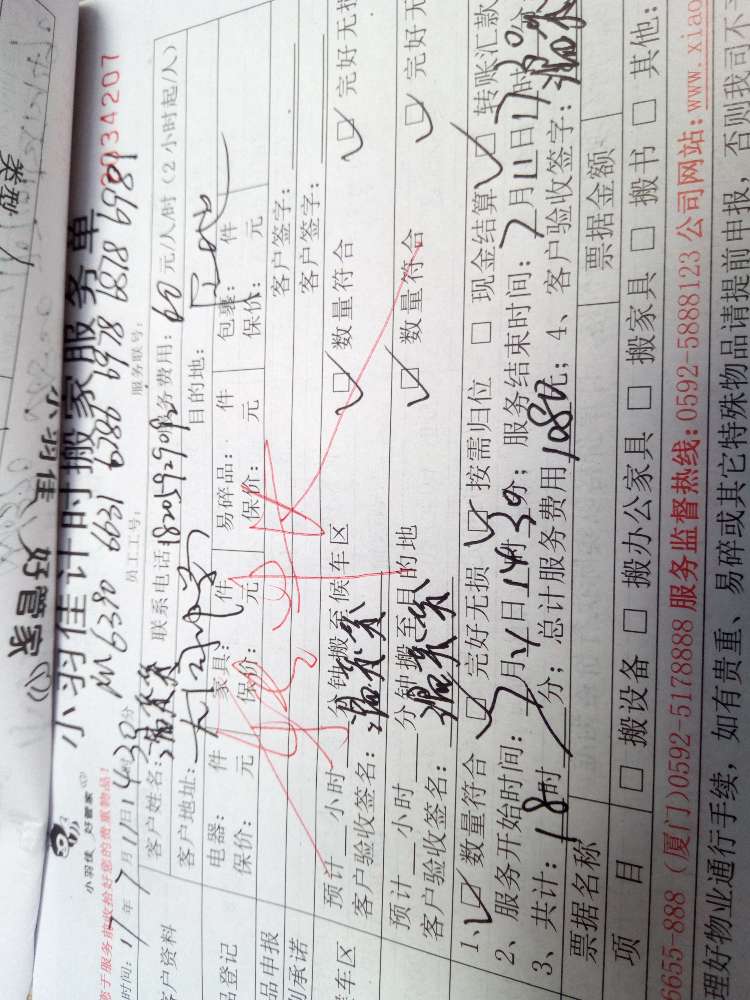 类型
小羽佳 好管家
小羽佳计时搬家服务单
0034207
小羽佳 好管家
M6380 6631 6280 6978 6818 6981
员工工号: 服务联号:
时间: 17年7月11日14时30分
客户资料
客户姓名: 联系电话: 务费用: 60元/人/时 (2小时起/人)
客户地址: 目的地:
品登记
电器: 件 家具: 件 易碎品: 件 包裹: 件
保价: 元 保价: 元 保价: 元 保价: 元
品申报 客户签字:
承诺 客户签字:
预计 小时 分钟搬至候车区 数量符合 完好无损
客户验收签名:
候车区
预计 小时 分钟搬至目的地 数量符合 完好无
客户验收签名:
1、 数量符合 完好无损 按需归位 现金结算 转账汇款
2、服务开始时间: 7月11日14时30分; 服务结束时间: 7月11日17时30
3、共计: 18时 分; 总计服务费用1080元; 4、客户验收签字:
票据名称 票据金额
项 目 搬设备 搬办公家具 搬家具 搬书 其他:
6655-888 (厦门)0592-5178888 服务监督热线: 0592-5888123 公司网站: www.xiao
理好物业通行手续, 如有贵重、易碎或其它特殊物品请提前申报, 否则我司不